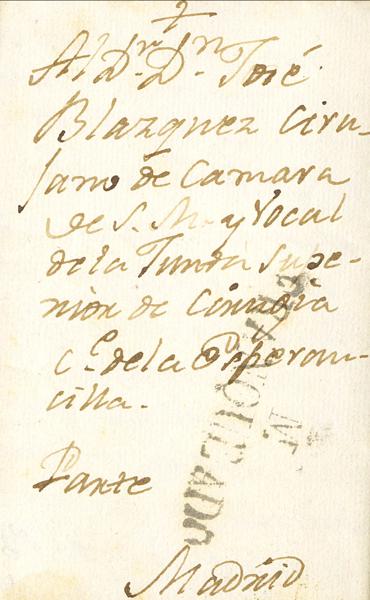 Al Dr. Dn. José
Blazquez Ciru-
jano de Camara
de S. M. y Vocal
de la Junta Supe-
rior de Cirugia
Ce. de la
cilla.
Parte
Madrid
FRANQUEADO